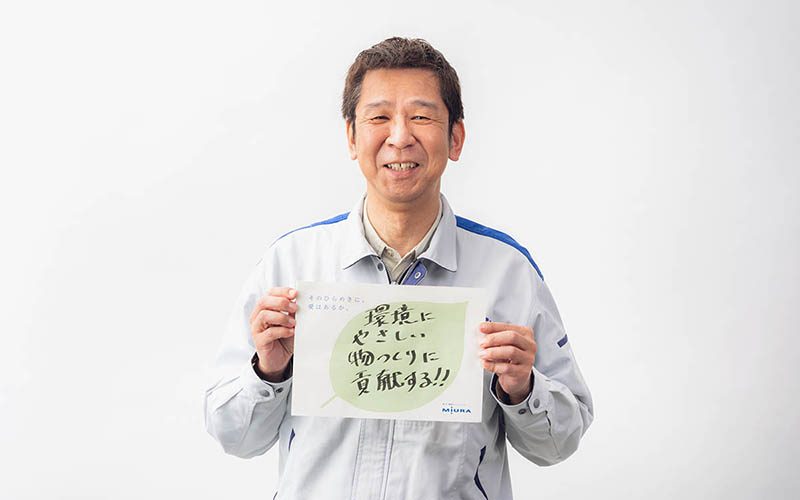 そのひらめきに、
愛はあるか。
環境に
やさしい
物つくりに
貢献する!!
MIURA